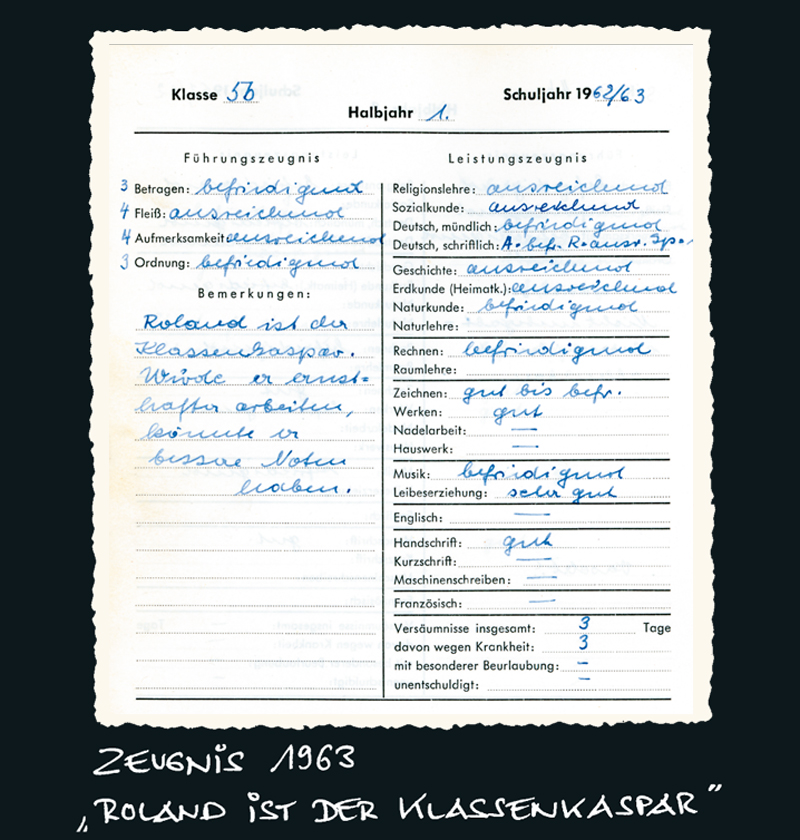 Klasse 5b
Schuljahr 1962/63
Halbjahr 1.
Führungszeugnis
3 Betragen: befriedigend
4 Fleiß: ausreichend
4 Aufmerksamkeit: ausreichend
3 Ordnung: befriedigend
Bemerkungen:
Roland ist der
Klassenkaspar.
Würde er ernst=
hafter arbeiten,
könnte er
bessere Noten
haben.
Leistungszeugnis
Religionslehre: ausreichend
Sozialkunde: ausreichend
Deutsch, mündlich: befriedigend
Deutsch, schriftlich: A. befr. R. ausr. Sp.
Geschichte: ausreichend
Erdkunde (Heimatk.): ausreichend
Naturkunde: befriedigend
Naturlehre:
Rechnen: befriedigend
Raumlehre:
Zeichnen: gut bis befr.
Werken: gut
Nadelarbeit: —
Hauswerk: —
Musik: befriedigend
Leibeserziehung: sehr gut
Englisch: —
Handschrift: gut
Kurzschrift: —
Maschinenschreiben: —
Französisch: —
Versäumnisse insgesamt: 3 Tage
davon wegen Krankheit: 3
mit besonderer Beurlaubung: -
unentschuldigt: -
ZEUGNIS 1963
„ROLAND IST DER KLASSENKASPAR"